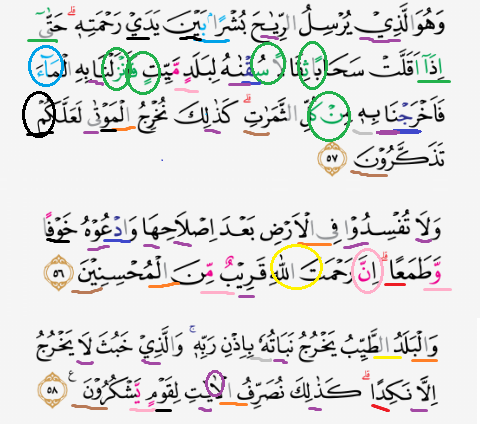 وَهُوَ الَّذِيْ يُرْسِلُ الرِّيٰحَ بُشْرًاۢ بَيْنَ يَدَيْ رَحْمَتِهٖۗ حَتّٰٓى
اِذَآ اَقَلَّتْ سَحَابًا ثِقَالًا سُقْنٰهُ لِبَلَدٍ مَّيِّتٍ فَاَنْزَلْنَا بِهِ الْمَاۤءَ
فَاَخْرَجْنَا بِهٖ مِنْ كُلِّ الثَّمَرٰتِۗ كَذٰلِكَ نُخْرِجُ الْمَوْتٰى لَعَلَّكُمْ
تَذَكَّرُوْنَ ٥٧
وَلَا تُفْسِدُوْا فِى الْاَرْضِ بَعْدَ اِصْلَاحِهَا وَادْعُوْهُ خَوْفًا
وَّطَمَعًاۗ اِنَّ رَحْمَتَ اللّٰهِ قَرِيْبٌ مِّنَ الْمُحْسِنِيْنَ ٥٦
وَالْبَلَدُ الطَّيِّبُ يَخْرُجُ نَبَاتُهٗ بِاِذْنِ رَبِّهٖۚ وَالَّذِيْ خَبُثَ لَا يَخْرُجُ
اِلَّا نَكِدًاۗ كَذٰلِكَ نُصَرِّفُ الْاٰيٰتِ لِقَوْمٍ يَّشْكُرُوْنَ ࣖ ٥٨